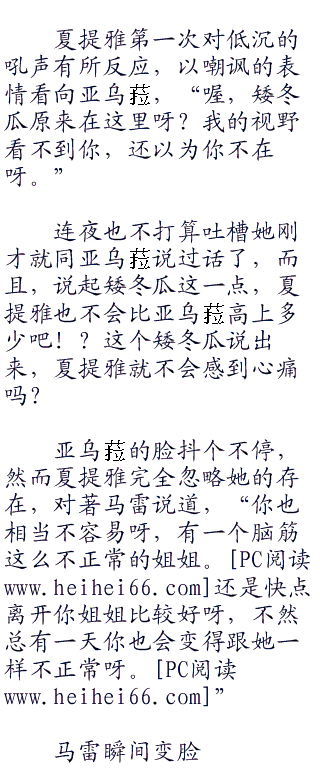 夏提雅第一次对低沉的
吼声有所反应，以嘲讽的表
情看向亚乌菈，“喔，矮冬
瓜原来在这里呀？我的视野
看不到你，还以为你不在
呀。”
连夜也不打算吐槽她刚
才就同亚乌菈说过话了，而
且，说起矮冬瓜这一点，夏
提雅也不会比亚乌菈高上多
少吧！？这个矮冬瓜说出
来，夏提雅就不会感到心痛
吗？
亚乌菈的脸抖个不停，
然而夏提雅完全忽略她的存
在，对著马雷说道，“你也
相当不容易呀，有一个脑筋
这么不正常的姐姐。[PC阅读
www.heihei66.com]还是快点
离开你姐姐比较好呀，不然
总有一天你也会变得跟她一
样不正常呀。[PC阅读
www.heihei66.com]”
马雷瞬间变脸